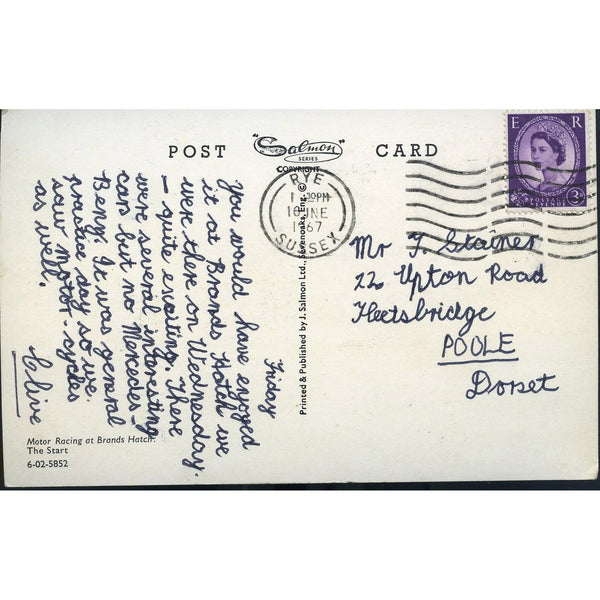 POST "Salmon" CARD
SERIES
COPYRIGHT
E R
POSTAGE
RYE
PM
10 JNE
1967
SUSSEX
Friday
You would have enjoyed
it at Brands Hatch we
were there on Wednesday.
- quite exciting. There
were several interesting
cars but no Mercedes-
Benz. It was general
practice day so we
saw motor-cycles
as well.
Clive
Printed & Published by J. Salmon Ltd., Sevenoaks, Eng. ©
Mr T. Stainer
22 Upton Road
Fleetsbridge
POOLE
Dorset
Motor Racing at Brands Hatch.
The Start
6-02-5852